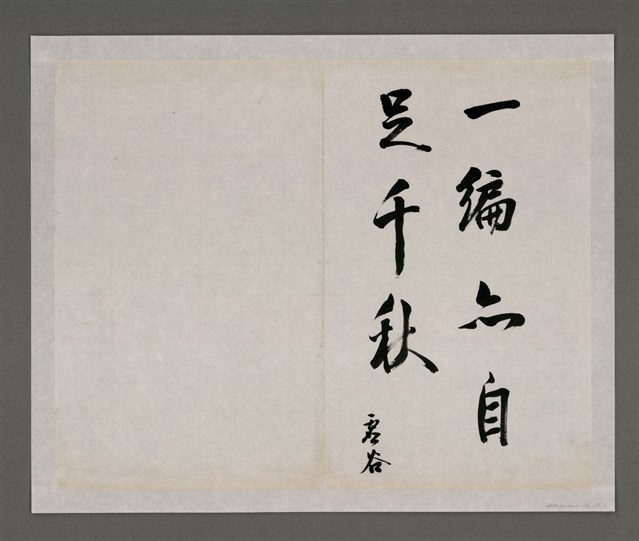 一編亦自
足千秋
虛谷